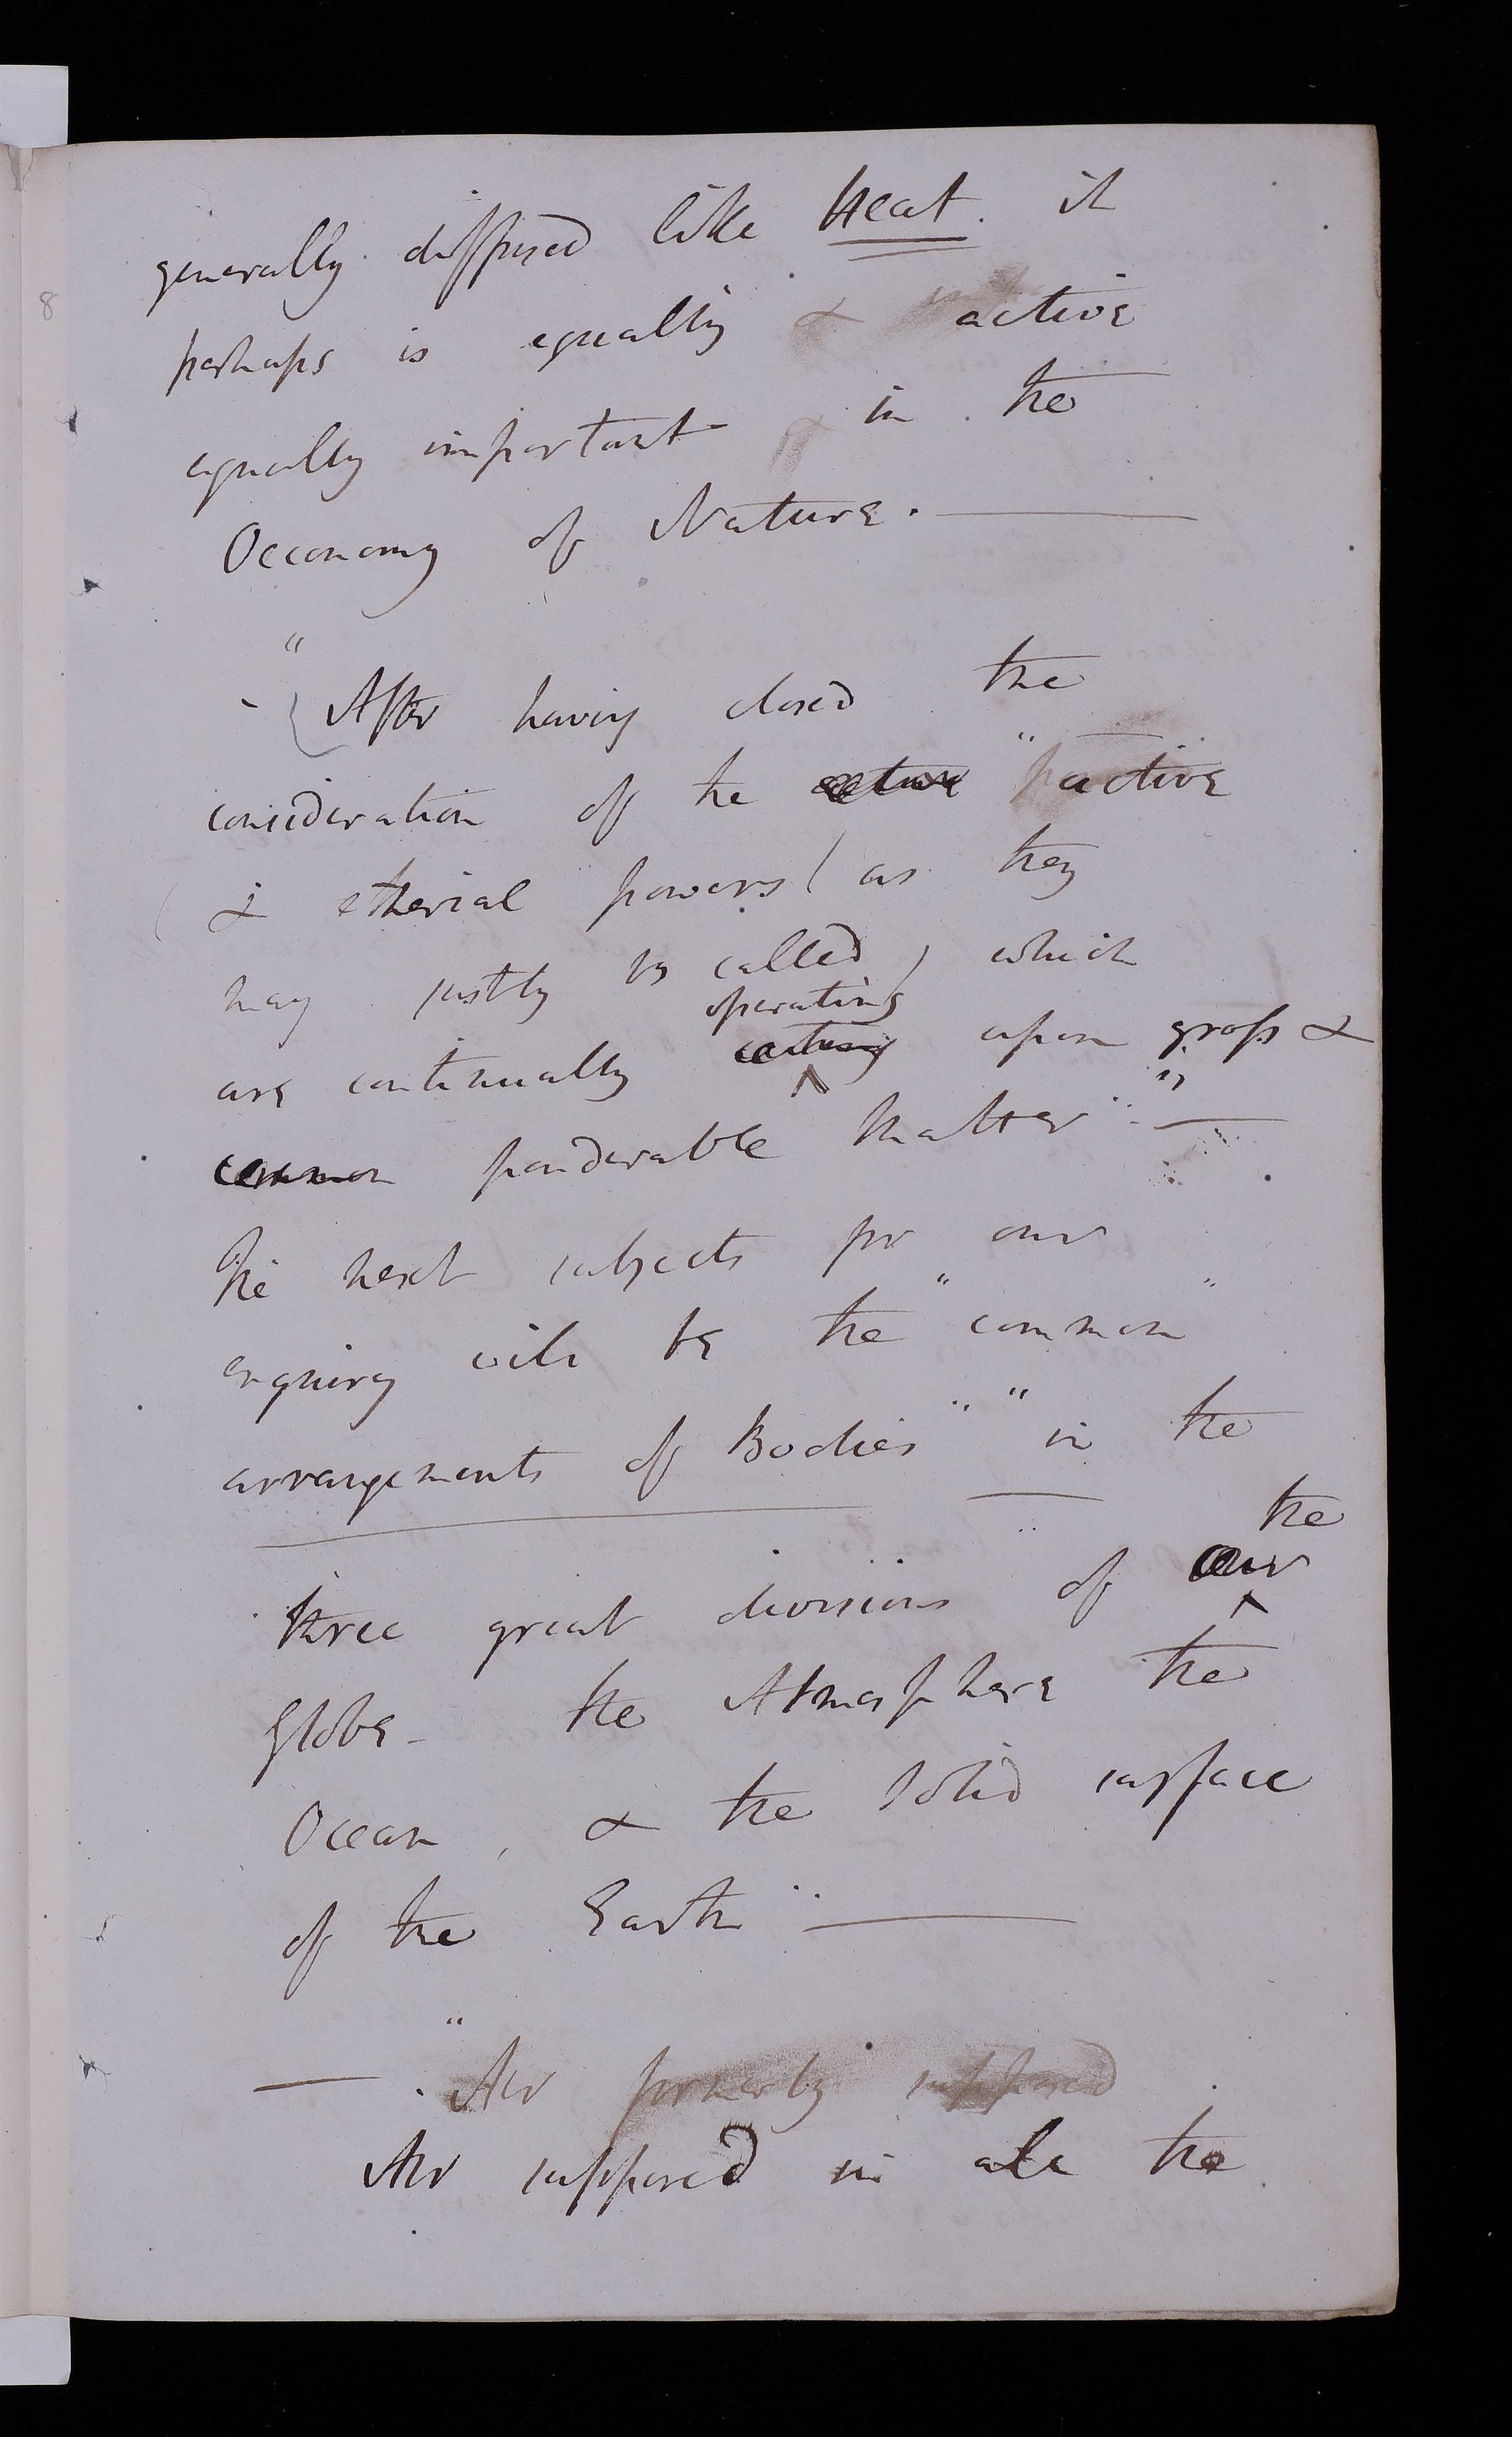 8
generally diffused like Heat. it
perhaps is equally & active
equally important & in the
Oeconomy of Nature. —
"After having closed the
consideration of the active "active
& etherial powers (as they
may justly be called) which
operating
are continually acting upon gross &
common ponderable matter" —
The next subjects for our
enquiry will be the "common"
arrangements of Bodies" "in the
the
three great divisions of our
Globe - the Atmosphere the
Ocean, & the solid surface
of the Earth" —
— "Air formerly supposed
Air supposed in all the